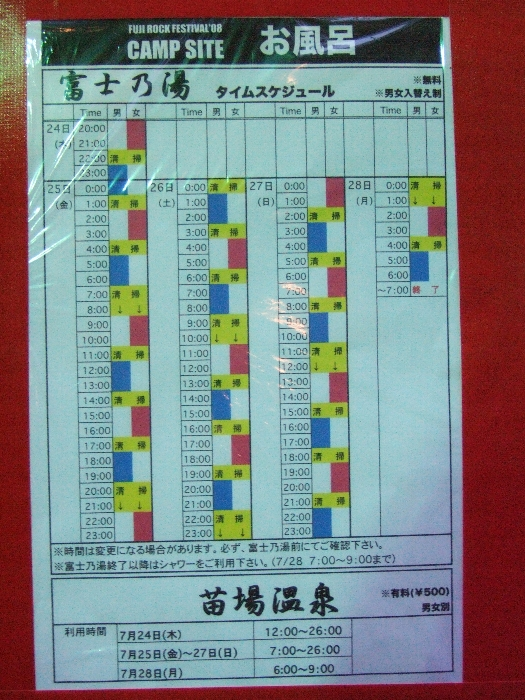 FUJI ROCK FESTIVAL'08
CAMP SITE お風呂
富士乃湯 タイムスケジュール ※無料
※男女入替え制
Time 男 女 Time 男 女 Time 男 女 Time 男 女
24日 20:00
(木) 21:00
22:00 清 掃
23:00
25日 0:00 26日 0:00 清 掃 27日 0:00 28日 0:00 清 掃
(金) 1:00 清 掃 (土) 1:00 (日) 1:00 (月) 1:00 ↓ ↓
2:00 2:00 2:00 清 掃 2:00
3:00 3:00 清 掃 3:00 3:00
4:00 清 掃 4:00 4:00 4:00 清 掃
5:00 5:00 5:00 清 掃 5:00
6:00 6:00 清 掃 6:00 6:00
7:00 清 掃 7:00 7:00 ～7:00 終 了
8:00 ↓ ↓ 8:00 8:00 清 掃
9:00 9:00 清 掃 9:00
10:00 10:00 ↓ ↓ 10:00
11:00 清 掃 11:00 11:00 清 掃
12:00 12:00 12:00 ↓ ↓
13:00 13:00 清 掃 13:00
14:00 清 掃 14:00 14:00
15:00 15:00 15:00 清 掃
16:00 16:00 清 掃 16:00
17:00 清 掃 17:00 17:00
18:00 18:00 18:00 清 掃
19:00 19:00 清 掃 19:00
20:00 清 掃 20:00 20:00
21:00 ↓ ↓ 21:00 21:00 清 掃
22:00 22:00 清 掃 22:00
23:00 23:00 ↓ ↓ 23:00
※時間は変更になる場合があります。必ず、富士乃湯前にてご確認下さい。
※富士乃湯終了以降はシャワーをご利用下さい。(7/28 7:00～9:00まで)
苗場温泉 ※有料(¥500)
男女別
利用時間 7月24日(木) 12:00～26:00
7月25日(金)～27日(日) 7:00～26:00
7月28日(月) 6:00～9:00